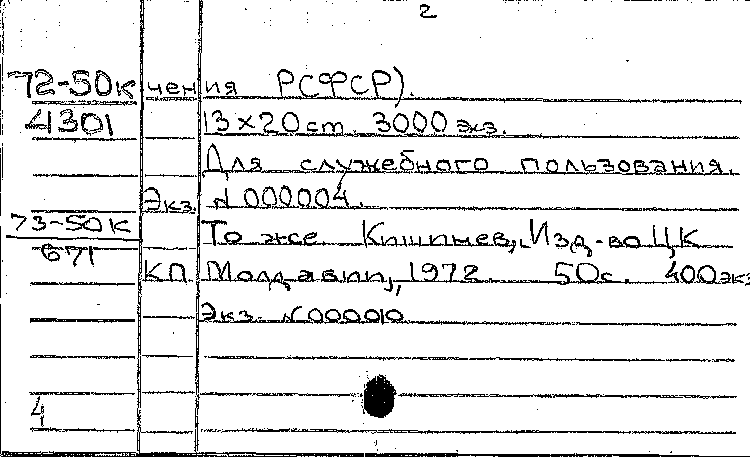 2
72-50к чения РСФСР).
4301 13×20cm. 3000 экз.
Для служебного пользования.
Экз. №000004.
73-50к То же Кишинев, Изд-во ЦК
671
КП Молдавии, 1972. 50с. 400экз
Экз. №000010
4